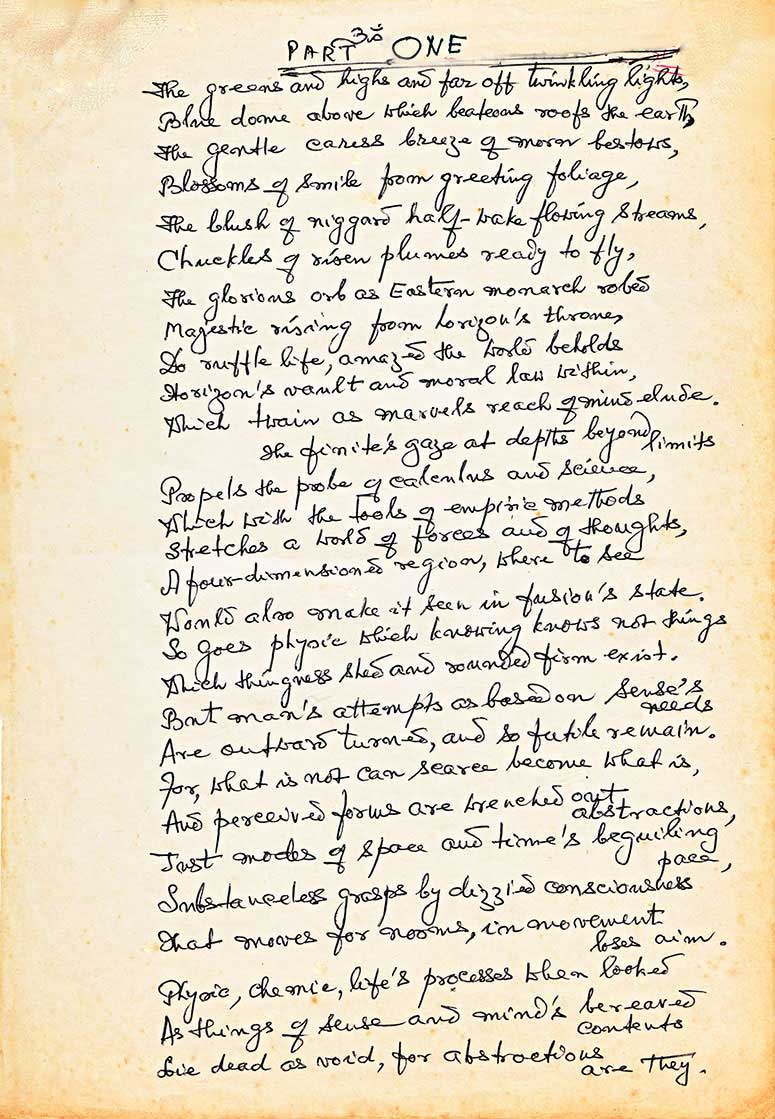 ॐ
PART ONE
The greens and highs and far off twinkling lights,
Blue dome above which beateous roofs the earth,
The gentle caress breeze of morn bestows,
Blossoms of smile from greeting foliage,
The blush of niggard half-wake flowing streams,
Chuckles of risen plumes ready to fly,
The glorious orb as Eastern monarch robed
Majestic rising from horizon's throne,
Do ruffle life, amazed the world beholds
Horizon's vault and moral law within,
Which twain as marvels reach of mind elude.
The finite's gaze at depths beyond limits
Propels the probe of calculus and science,
Which with the tools of empiric methods
Stretches a world of forces and of thoughts,
A four-dimensioned region, where to see
Would also make it seen in fusion's state.
So goes physic which knowing knows not things
Which thingness shed and rounded firm exist.
But man's attempts as based on sense's needs
Are outward turned, and so futile remain.
For, what is not can scarce become what is,
And perceived forms are wrenched out abstractions,
Just modes of space and time's beguiling pace,
Substanceless grasps by dizzied consciousness
That moves for norms, in movement loses aim.
Physic, chemic, life's processes when looked
As things of sense and mind's bereaved contents
Lie dead as void, for abstractions are they.